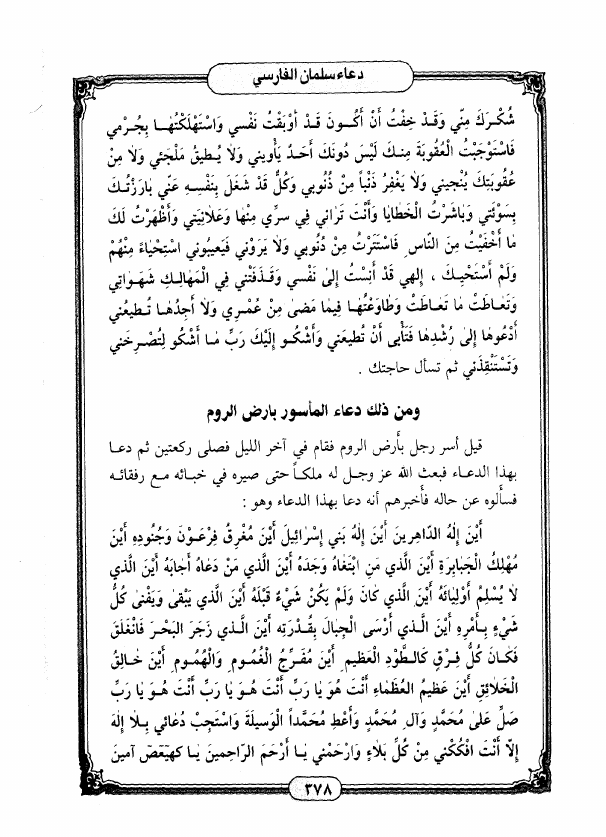 دعاء سلمان الفارسي
شُكْرَكَ مِنِّي وَقَدْ خِفْتُ أَنْ أَكُونَ قَدْ أَوْبَقْتُ نَفْسي وَاسْتَهْلَكْتُهَا بِجُرْمي
فَاسْتَوْجَبْتُ الْعُقُوبَةَ مِنكَ لَيْسَ دُونَكَ أَحَدٌ يَأْويني وَلَا يُطيقُ مَلْجَئي وَلَا مِنْ
عُقُوبَتِكَ يُنْجيني وَلَا يَغْفِرُ ذَنْباً مِنْ ذُنُوبي وَكُلٌّ قَدْ شَغَلَ بِنَفْسِهِ عَنِّي بَارَزْتُكَ
بِسَوْئَتي وَبَاشَرْتُ الْخَطَايَا وَأَنْتَ تَرَاني فِي سِرِّي مِنْهَا وَعَلَانِيَتي وَأَظْهَرْتُ لَكَ
مَا أَخْفَيْتُ مِنَ النَّاسِ فَاسْتَتَرْتُ مِنْ ذُنُوبي وَلَا يَرَوْني فَيَعيبُوني اسْتِحْيَاءً مِنْهُمْ
وَلَمْ أَسْتَحْيِكَ ، إِلهي قَدْ أَنِسْتُ إِلَىٰ نَفْسي وَقَذَفَتْني فِي الْمَهَالِكِ شَهَوَاتي
وَتَعَاطَتْ مَا تَعَاطَتْ وَطَاوَعْتُهَا فِيمَا مَضىٰ مِنْ عُمْرِي وَلَا أَجِدُهَا تُطيعُني
أَدْعُوهَا إِلىٰ رُشْدِهَا فَتَأْبى أَنْ تُطيعَني وَأَشْكُو إِلَيْكَ رَبِّ مَا أَشْكُو لِتُصْرِخَني
وَتَسْتَنْقِذَني ثم تسأل حاجتك .
ومن ذلك دعاء المأسور بارض الروم
قيل أسر رجل بأرض الروم فقام في آخر الليل فصلى ركعتين ثم دعا
بهذا الدعاء فبعث الله عز وجل له ملكاً حتى صيره في خبائه مع رفقائه
فسألوه عن حاله فأخبرهم أنه دعا بهذا الدعاء وهو :
أَيْنَ إِلهُ الدَّاهِرينَ أَيْنَ إِلهُ بَني إِسْرَائيلَ أَيْنَ مُغْرِقُ فِرْعَوْنَ وَجُنُودِهِ أَيْنَ
مُهْلِكُ الْجَبَابِرَةِ أَيْنَ الَّذي مَنِ ابْتَغَاهُ وَجَدَهُ أَيْنَ الَّذي مَنْ دَعَاهُ أَجَابَهُ أَيْنَ الَّذي
لَا يُسْلِمُ أَوْلِيَائَهُ أَيْنَ الَّذي كَانَ وَلَمْ يَكُنْ شَيْءٌ قَبْلَهُ أَيْنَ الَّذي يَبْقىٰ وَيَفْنى كُلُّ
شَيْءٍ بِأَمْرِهِ أَيْنَ الَّذي أَرْسَى الْجِبَالَ بِقُدْرَتِهِ أَيْنَ الَّذي زَجَرَ الْبَحْرَ فَانْغَلَقَ
فَكَانَ كُلُّ فِرْقٍ كَالطَّوْدِ الْعَظيمِ أَيْنَ مُفَرِّجُ الْغُمُومِ وَالْهُمُومِ أَيْنَ خَالِقُ
الْخَلَائِقِ أَيْنَ عَظيمُ الْعُظَمَاءِ أَنْتَ هُوَ يَا رَبِّ أَنْتَ هُوَ يَا رَبِّ أَنْتَ هُوَ يَا رَبِّ
صَلِّ عَلىٰ مُحَمَّدٍ وَآلِ مُحَمَّدٍ وَأَعْطِ مُحَمَّداً الْوَسيلَةَ وَاسْتَجِبْ دُعَائي بِلَا إِلهَ
إِلَّا أَنْتَ افْكُكْني مِنْ كُلِّ بَلَاءٍ وَارْحَمْني يَا أَرْحَمَ الرَّاحِمينَ يَا كهيَعَصَ آمينَ
٣٧٨